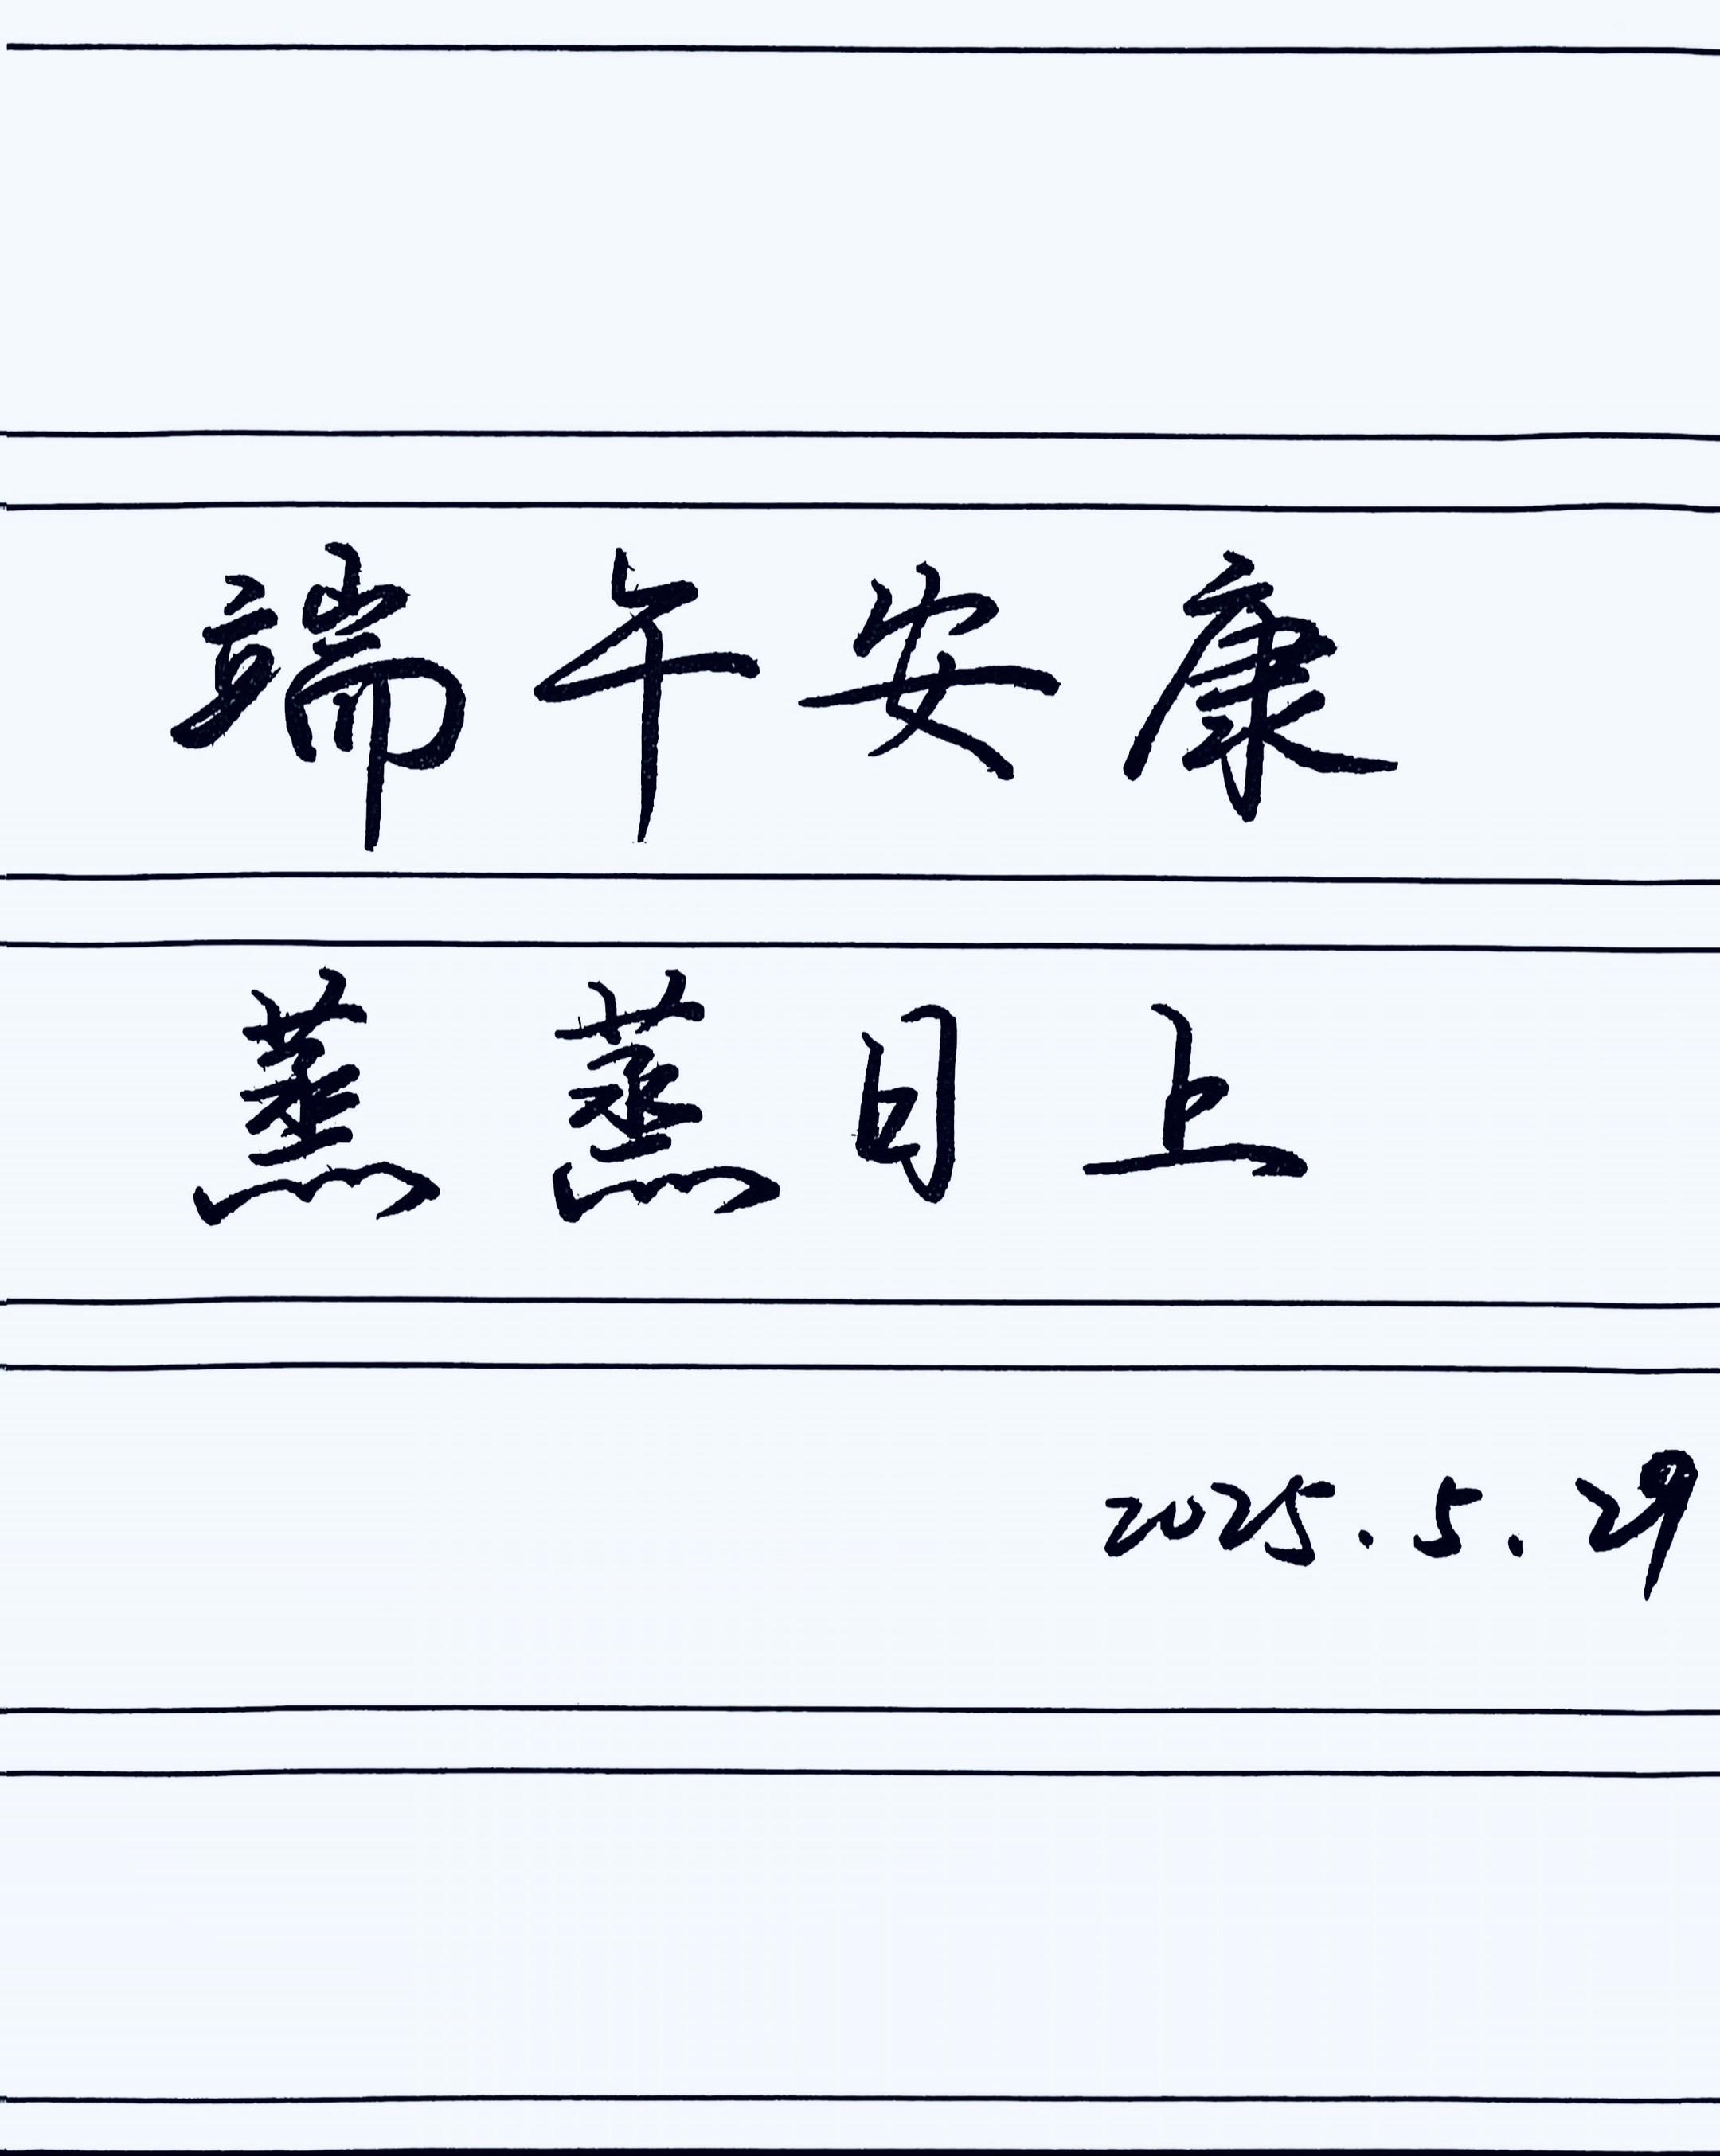 端午安康
蒸蒸日上
2025.5.29